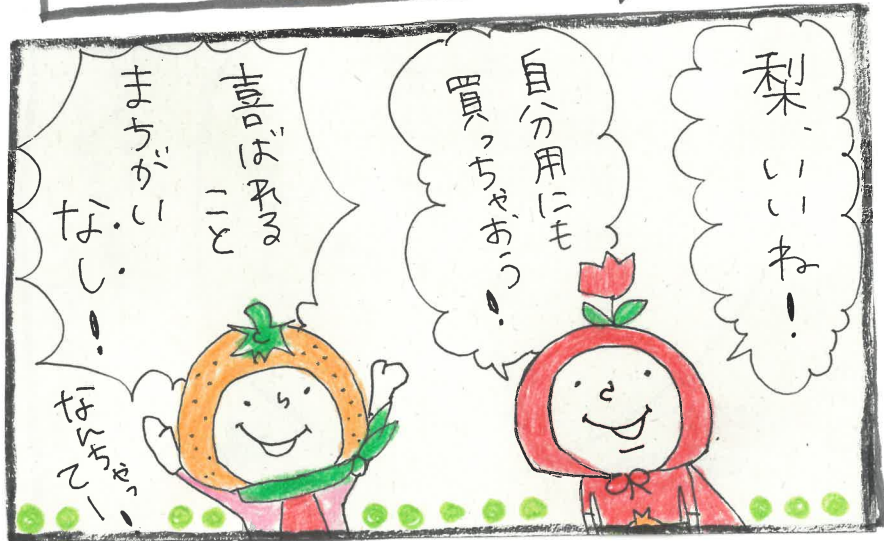 梨、いいね!
自分用にも
買っちゃおう!
喜ばれる
こと
まちがい
なし!
なんちゃっ
てー